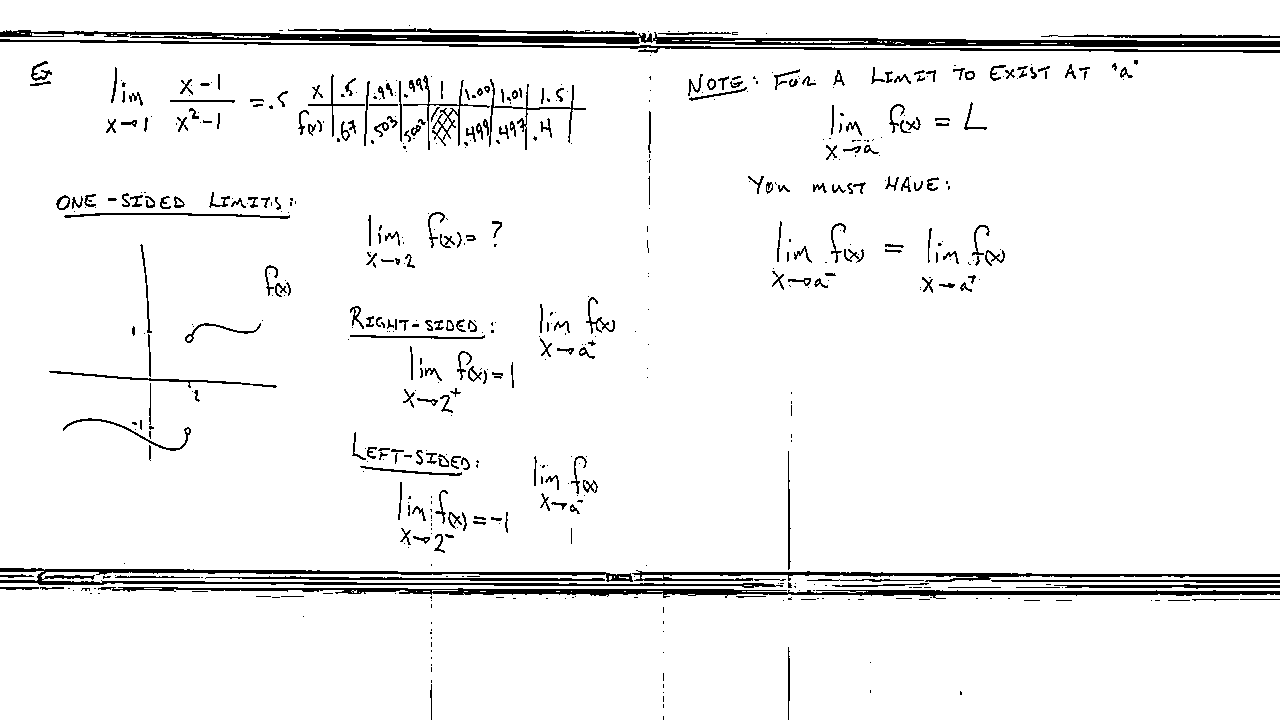 Ex
lim x→1 (x-1)/(x²-1) = .5
x | .5 | .99 | .999 | 1 | 1.001 | 1.01 | 1.5
f(x) | .67 | .503 | .5002 | | .499 | .497 | .4
ONE-SIDED LIMITS:
f(x)
1
2
-1
lim x→2 f(x) = ?
RIGHT-SIDED: lim x→a⁺ f(x)
lim x→2⁺ f(x) = 1
LEFT-SIDED: lim x→a⁻ f(x)
lim x→2⁻ f(x) = -1
NOTE: FOR A LIMIT TO EXIST AT "a"
lim x→a f(x) = L
YOU MUST HAVE:
lim x→a⁻ f(x) = lim x→a⁺ f(x)